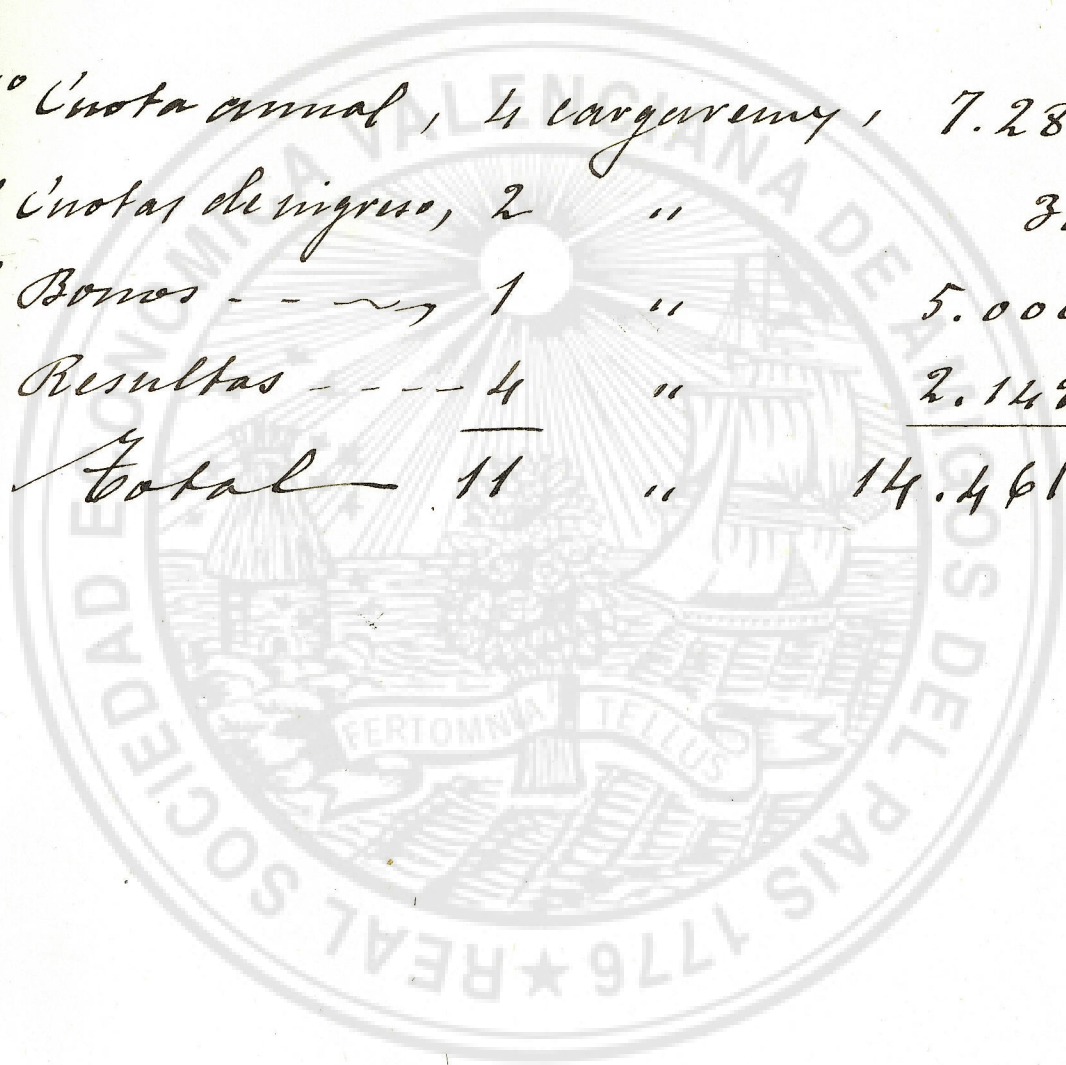 º Cuota annal, 4 cargaremes, 7.28
Cuotas de ingreso, 2 " 3
Bonos - - - , 1 " 5.000
Resultas - - - - 4 " 2.142
Total 11 " 14.461
REAL SOCIEDAD ECONOMICA VALENCIANA DE AMIGOS DEL PAIS 1776 ★
FERT OMNIA TELLUS